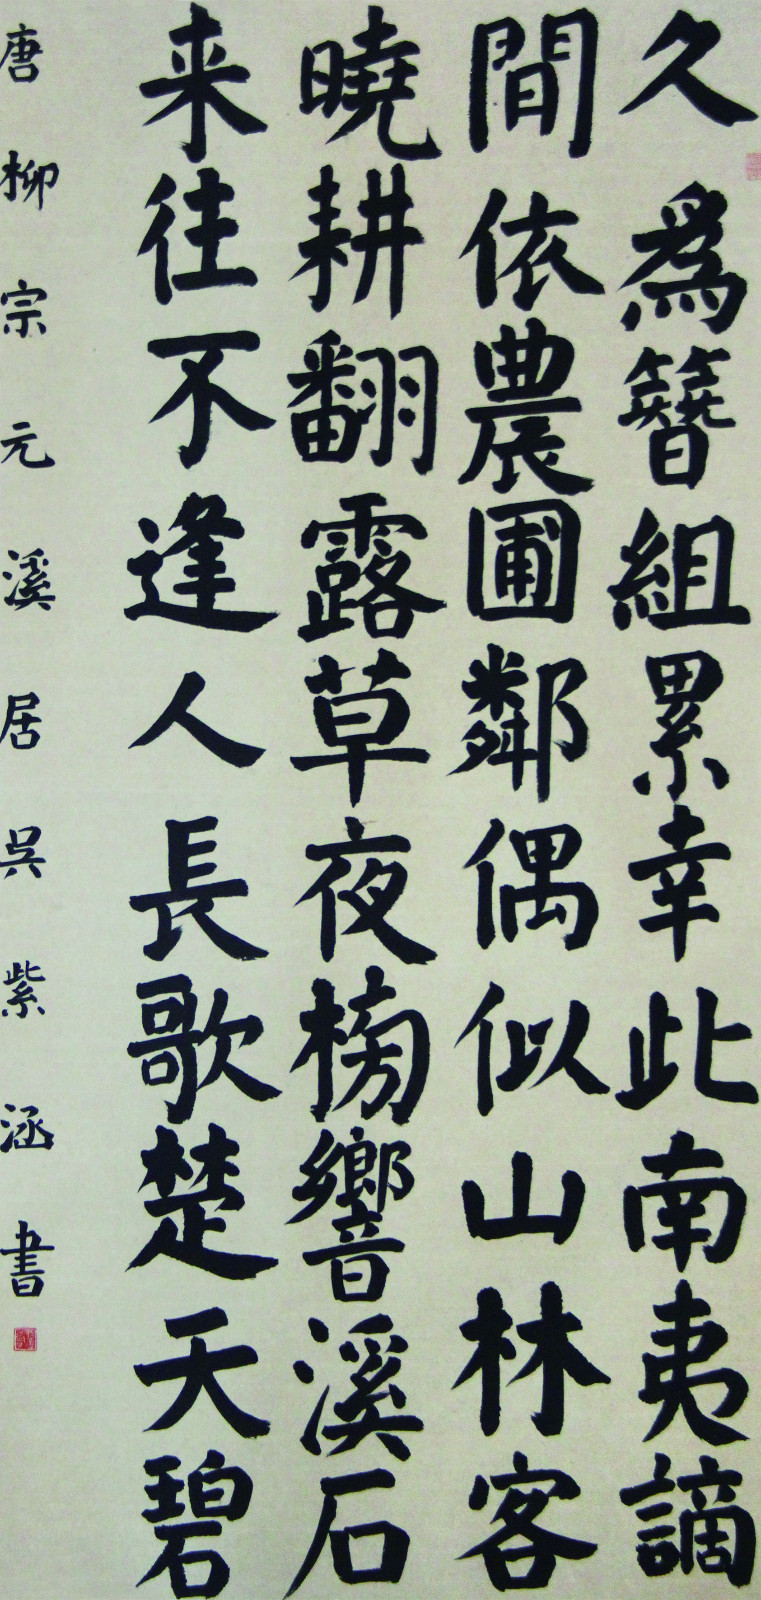 久為簪組累幸此南夷謫
間依農圃鄰偶似山林客
曉耕翻露草夜榜響溪石
来往不逢人長歌楚天碧
唐柳宗元溪居吳紫涵書